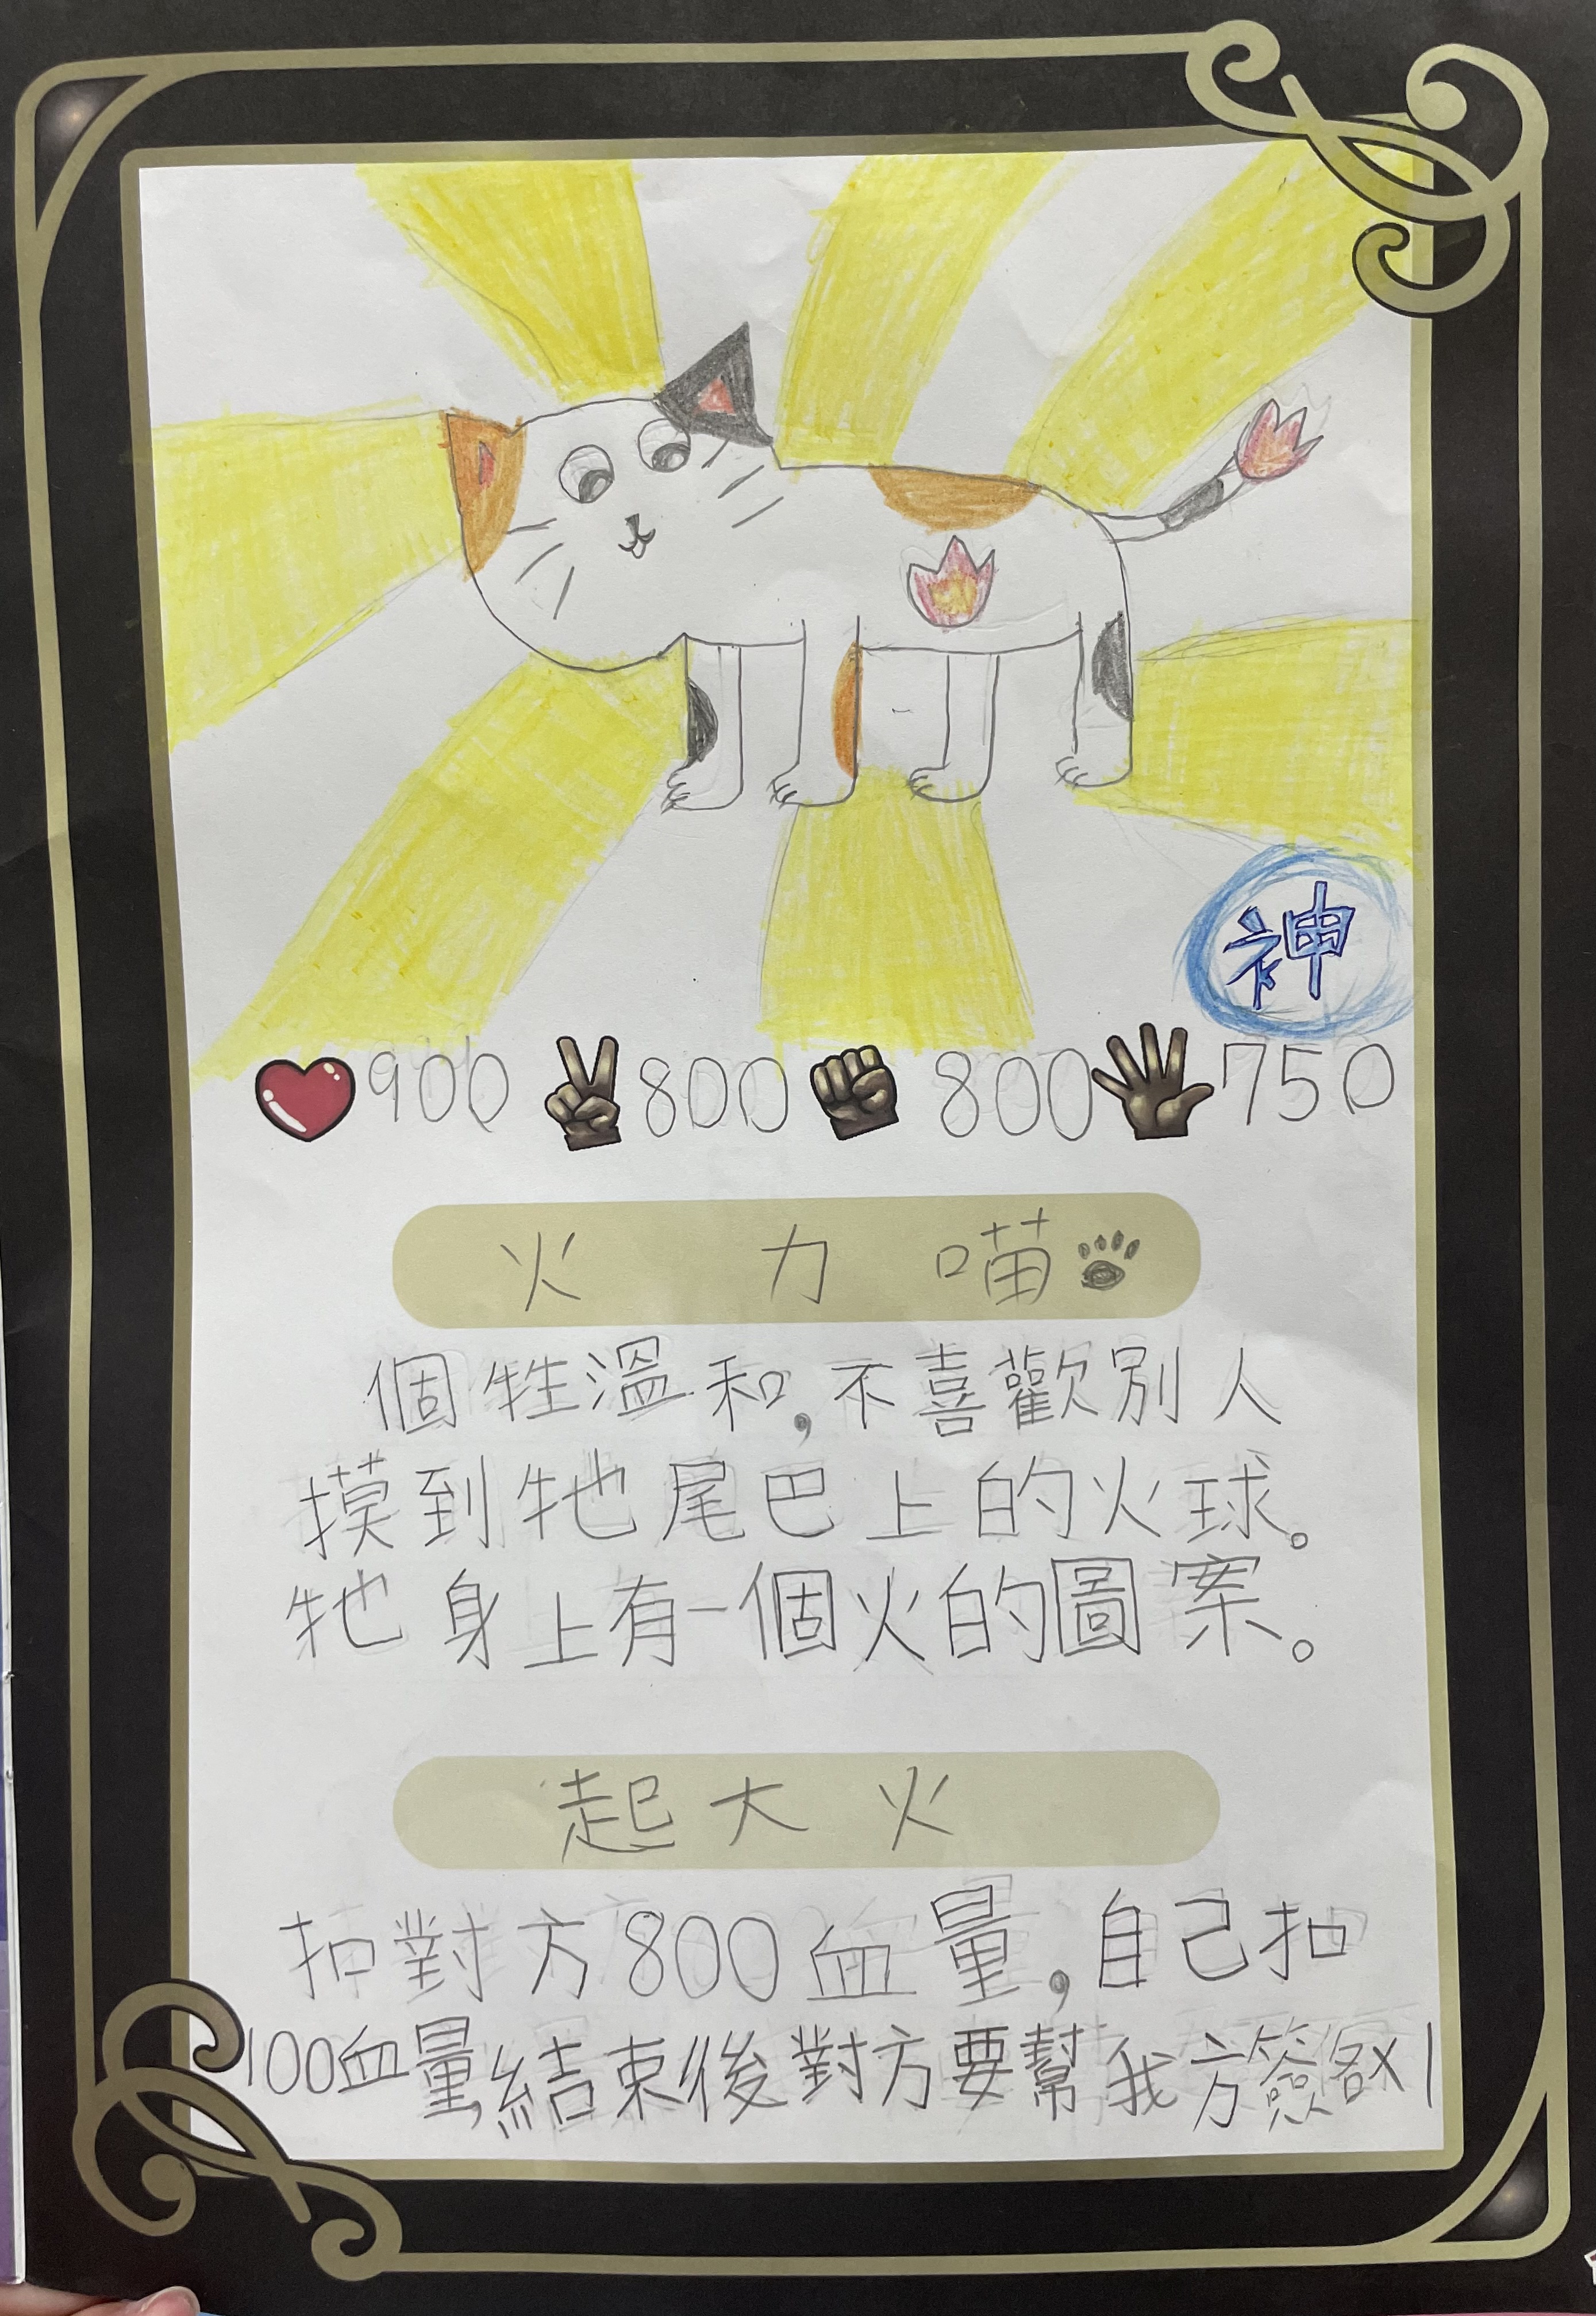 神
900 800 800 750
火力喵
個性溫和,不喜歡別人
摸到牠尾巴上的火球。
牠身上有一個火的圖案。
起大火
扣對方800血量,自己扣
100血量,結束後對方要幫我方簽名x1